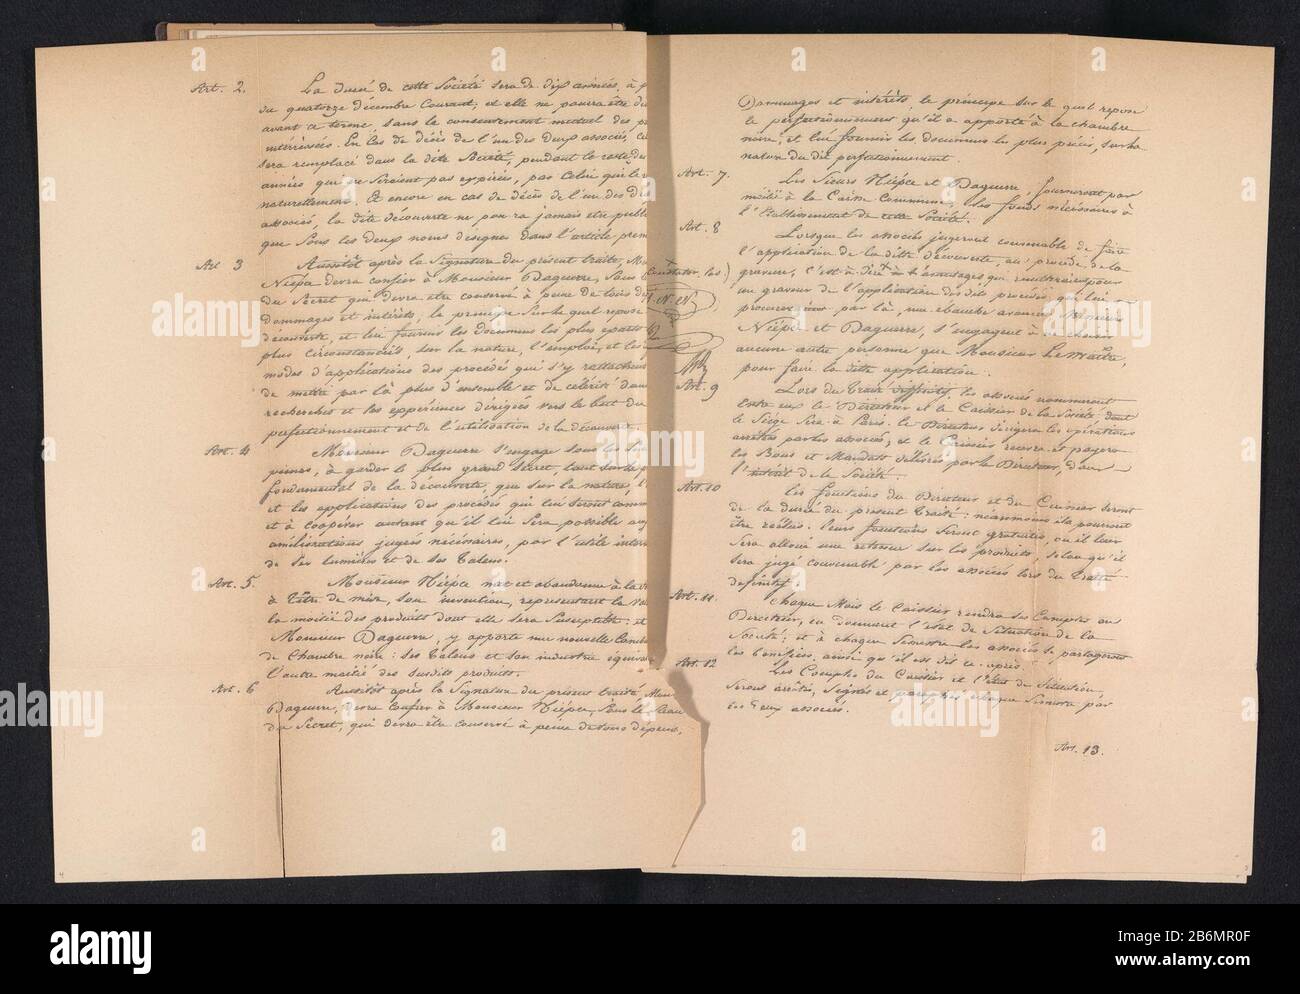 Art. 2. La durée de cette Société sera de dix années, à p
du quatorze décembre Courant; et elle ne pourra être du
avant ce terme sans le consentement mutuel des p
intéréssées. En Cas de décès de l'un des deux associés, ce
sera remplacé dans la dite Société, pendant le reste des
années qui ne seraient pas expirées, par Celui qui le
naturellement. Et encore en cas de décès de l'un des D
associés, la dite découverte ne pourra jamais etre publ
que Sous les deux noms désignés dans l'article prem
Art 3 Aussitôt après la Signature du présent traité, M
Niépce devra confier à Monsieur Daguerre, Sous
du Secret qui devra être conservé à peine de tous dé
dommages et intérêts, le principe sur le quel repose
découverte, et lui fournir les documens les plus exacts
plus circonstanciés, sur la nature, l'emploi, et les
modes d'applications des procédés qui s'y rattachens
de mettre par là plus d'ensemble et de célérité dans
recherches et les expériences dirigées vers le but du
perfectionnement et de l'utilisation de la découverte.
Art. 4 Monsieur Daguerre s'engage sous les sus
peines, à garder le plus grand Secret, tant sur le p
fondamental de la découverte, que sur la nature, l'
et les applications des procédés qui lui seront comm
et à coopérer autant qu'il lui Sera possible aux
améliorations jugées nécéssaires, par l'utile interv
de Ses lumières et de Ses talens.
Art. 5. Monsieur Niépce met et abandonne à la S
à titre de mise, son invention, représentant la va
la moitié des produits dont elle sera Susceptible: et
Monsieur Daguerre, y apporte une nouvelle Comb
de Chambre noire: ses talens et son industrie équiva
l'autre moitié des susdits produits.
Art. 6 Aussitôt après la Signature du présent traité, Mon
Daguerre, devra Confier à Monsieur Niépce, Sous le Sceau
du Secret, qui devra être conservé à peine de tous dépens,
Constater les)
J. N. N.
Dommages et intérêts, le principe sur le quel repose
le perfectionnement qu'il a apporté à la chambre
noire, et lui fournir les documens les plus précis, sur la
nature du dit perfectionnement.
Art. 7. Les Sieurs Niépce et Daguerre, fourniront par
moitié à la Caisse Commune, les fonds nécéssaires à
l'Etablissement de cette Société.
Art. 8 Lorsque les associés jugeront convenable de faire
l'application de la dite découverte, au procédé de la
gravure, c'est-à-dire de avantages qui résulteraient pour
un graveur de l'application des dits procédés qui lui
procureraient par là, une ébauche avancée, Messieurs
Niépce et Daguerre, s'engagent à ne choisir
aucune autre personne que Monsieur Lemaître,
pour faire la dite application.
Art. 9 Lors du traité définitif, les associés nommeront
entre eux le Directeur et le Caissier de la Société dont
le Siège Sera à Paris. Le Directeur, dirigera les opérations
arrêtées par les associés, et le Caissier recevra et payera
les Bons et Mandats délivrés par le Directeur, dans
l'intérêt de la Société.
Art. 10 Les fonctions du Directeur et du Caissier seront
de la durée du présent traité: néanmoins ils pourront
être réélus. Leurs fonctions Seront gratuites, ou il leur
Sera alloué une retenue sur les produits, selon qu'il
sera jugé convenable par les associés lors du traité
définitif.
Art. 11. Chaque Mois le Caissier rendra ses Comptes au
Directeur, en donnant l'état de Situation de la
Société: et à chaque Semestre les associés se partageront
les bénéfices, ainsi qu'il est dit ci-après.
Art. 12 Les Comptes du Caissier et l'état de Situation,
Seront arrêtés, Signés et paraphés chaque Semestre par
les deux associés.
Art. 13.
alamy
Image ID: 2B6MR0F
www.alamy.com